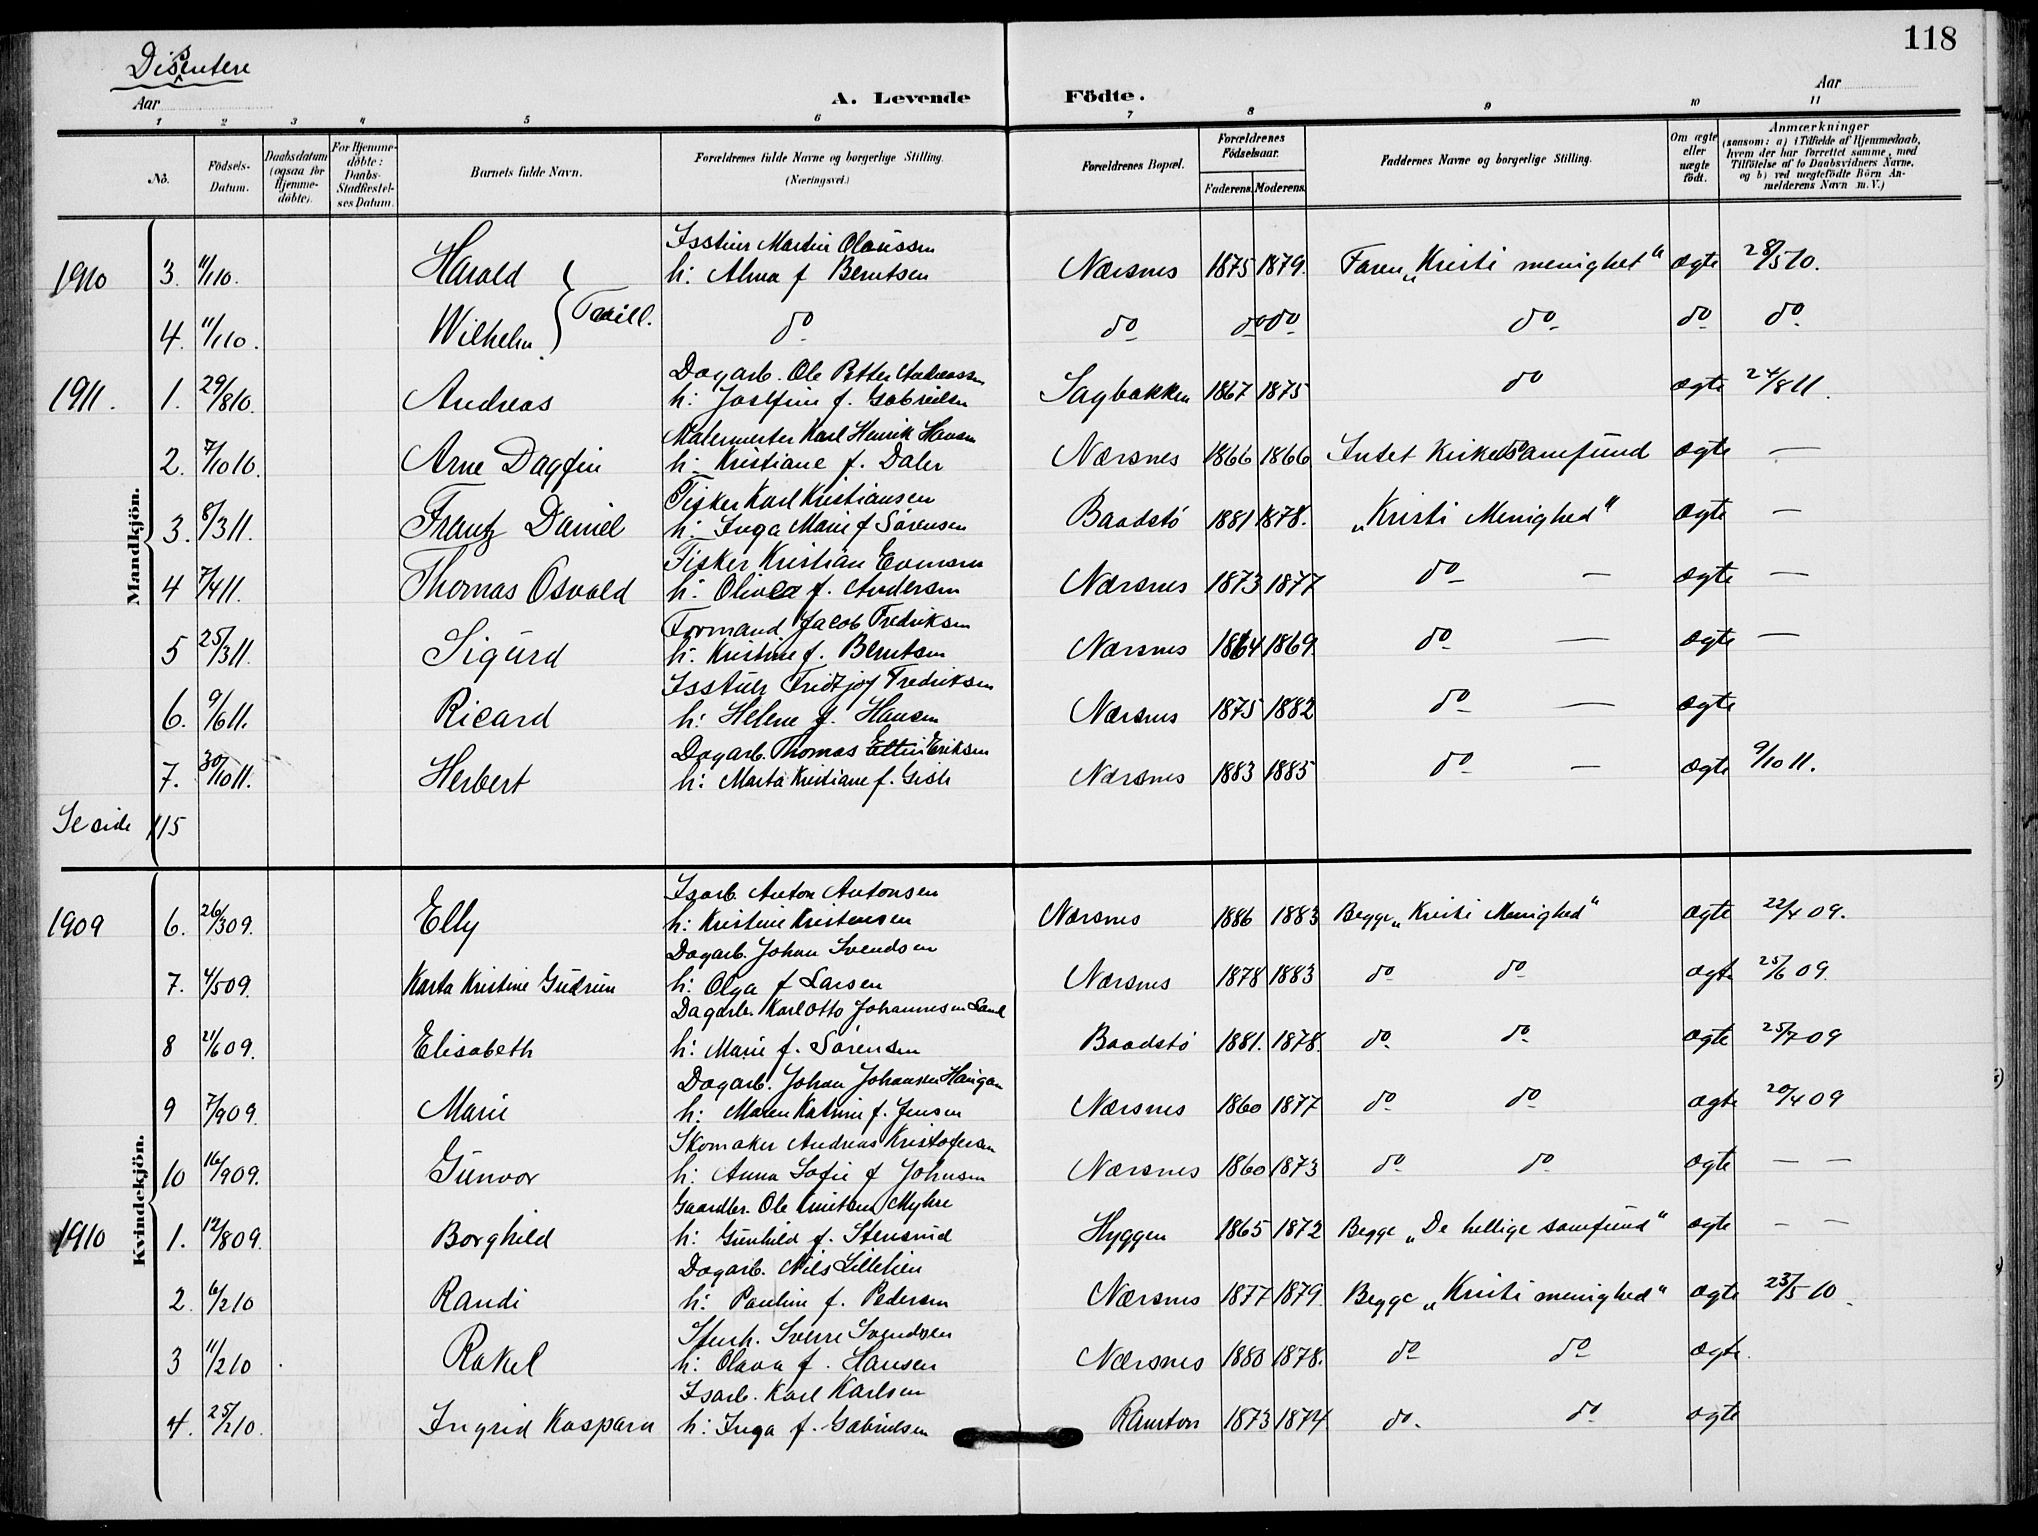 118
Dissentere
Aar
A. Levende Födte.
Aar
1 2 3 4 5 6 7 8 9 10 11
No.
Födsels-
Datum.
Daabsdatum
(ogsaa for
Hjemme-
döbte).
For Hjemme-
döbte:
Daabs-
Stadfæstel-
ses Datum.
Barnets fulde Navn.
Forældrenes fulde Navne og borgerlige Stilling.
(Næringsvei.)
Forældrenes Bopæl.
Forældrenes
Födselsaar.
Faderens. Moderens.
Faddernes Navne og borgerlige Stilling.
Om ægte
eller
uægte
födt.
Anmærkninger
(saasom: a) i Tilfælde af Hjemmedaab,
hvem der har forrettet samme, med
Tilföielse af to Daabsvidners Navne,
og b) ved uægtefödte Börn An-
melderens Navn m. V.)
Mandkjön.
Isstuer Martin Olaussen
1910 3. 11/1 10. Harald h: Alma f Berntsen Nærsnes 1875 1879. Faren "Kristi menighet" ægte 28/5 10.
4. 11/1 10. Wilhelm Tvill. do do do do do do do
Dagarb. Ole Petter Andreassen
1911. 1. 29/8 10. Andreas h: Josefine f. Gabrielsen Sagbakken 1867 1875 do ægte 24/8 11.
Malermester Karl Henrik Hansen
2. 7/10 10. Arne Dagfin h: Kristiane f. Daler Nærsnes 1866 1866 Intet Kirkesamfund ægte —
Fisker Karl Kristiansen
3. 8/3 11. Frantz Daniel h: Inga Marie f Sørensen Baadstö 1881 1878. "Kristi Menighed" ægte —
Fisker Kristian
4 7/4 11. Thomas Osvald h: Olivea f. Andersen Nærsnes 1873 1877 do — ægte —
Formand Jacob Fredriksen
5 25/3 11. Sigurd h: Kristine f. Berntsen Nærsnes 1864 1869. do — ægte —
Isstuer Fridtjof Fredriksen
6. 9/6 11. Ricard h: Helene f. Hansen Nærsnes 1875 1882 do — ægte
Dagarb. Thomas Eriksen
7. 30/10 11. Herbert h: Marta Kristiane f. Nærsnes 1883 1885 do — ægte 9/10 11.
Se side 115
Kvindekjön.
Isarb. Anton Antonsen
1909 6. 26/3 09. Elly h: Kristine Kristensen Nærsnes 1886 1883 Begge "Kristi Menighed" ægte 22/4 09.
Dagarb. Johan Svendsen
7. 4/5 09. Karta Kristine Gudrun h: Olga f Larsen Nærsnes 1878 1883 do do ægte 25/6 09.
Dagarb. Karl Otto Johannesen
8 21/6 09. Elisabeth h: Marie f. Sørensen Baadstö 1881. 1878. do do ægte 25/7 09
Dagarb. Johan Johansen Haugan
9 7/9 09. Marie h: Maren Katrine f. Jensen Nærsnes 1860 1877 do do ægte 20/4 09
Skomaker Andreas Kristofersen
10 16/9 09. Gunvor h: Anna Sofie f Johnsen Nærsnes 1860 1873 do do ægte — —
Gaardbr. Ole Knutsen Myhre
1910 1. 12/8 09. Borghild h: Gunhild f. Stensrud Hyggen 1865 1872 Begge "De hellige samfund" ægte — —
Dagarb. Nils Lillelien
2. 6/2 10 Randi h: Pauline f. Pedersen Nærsnes 1877 1879. Begge "Kristi menighed" ægte 23/5 10.
Stenh. Sverre Svendsen
3 11/2 10 Rakel h: Olava f. Hansen Nærsnes 1880 1878. do do ægte.
Isarb. Karl Karlsen
4. 25/2 10. Ingrid Kaspara h: Inga f. Gabrielsen Ramton 1873 1874. do do ægte